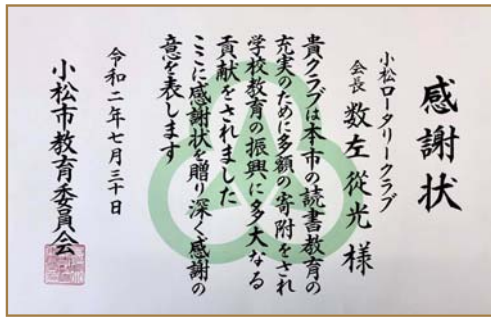 感謝状
小松ロータリークラブ
会長 数左從光様
貴クラブは本市の読書教育の
充実のために多額の寄附をされ
学校教育の振興に多大なる
貢献をされました
ここに感謝状を贈り深く感謝の
意を表します
令和二年七月三十日
小松市教育委員会